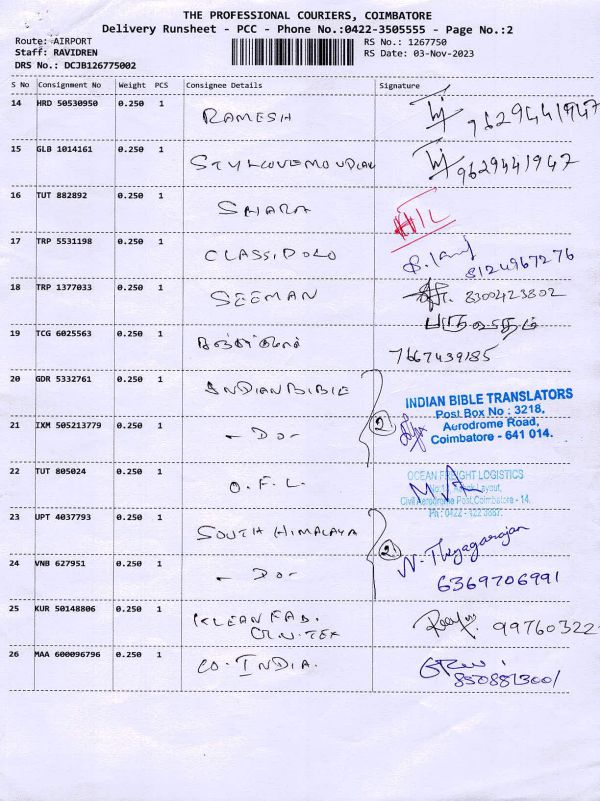 THE PROFESSIONAL COURIERS, COIMBATORE
Delivery Runsheet - PCC - Phone No.:0422-3505555 - Page No.:2
Route: AIRPORT RS No.: 1267750
Staff: RAVIDREN RS Date: 03-Nov-2023
DRS No.: DCJB126775002
S No Consignment No Weight PCS Consignee Details Signature
14 HRD 50530950 0.250 1 RAMESH 9629441947
15 GLB 1014161 0.250 1 9629441947
16 TUT 882892 0.250 1 SAHARA
17 TRP 5531198 0.250 1 8124967276
18 TRP 1377033 0.250 1 SEEMAN 8300423802
19 TCG 6025563 0.250 1 7667439185
20 GDR 5332761 0.250 1 INDIAN BIBLE
INDIAN BIBLE TRANSLATORS
Post Box No : 3218,
Aerodrome Road,
Coimbatore - 641 014.
21 IXM 505213779 0.250 1 - DO - 2
22 TUT 805024 0.250 1 O.F.L.
OCEAN FREIGHT LOGISTICS
Layout,
Civil Aerodrome Post, Coimbatore - 14.
Ph : 0422 -
23 UPT 4037793 0.250 1 SOUTH HIMALAYA
N. Thyagarajan
24 VNB 627951 0.250 1 - DO - 2 6369706991
25 KUR 50148806 0.250 1 KLEAN FAB. 99760322
26 MAA 600096796 0.250 1 CO-INDIA. 8508813001